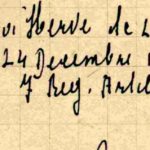 Herve de L
24 Decembre
7 Reg. Artil